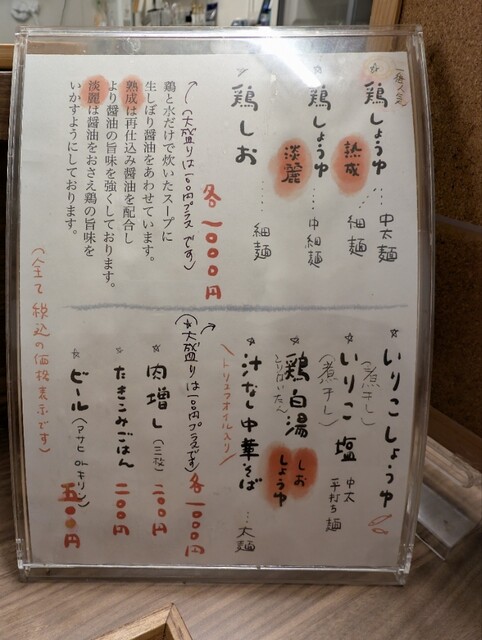 一番人気
☆鶏しょうゆ 熟成 … 中太麺
細麺
☆鶏しょうゆ 淡麗 … 中細麺
☆鶏しお … 細麺
各一〇〇〇円
(大盛りは一〇〇円プラスです)
鶏と水だけで炊いたスープに
生しぼり醤油をあわせています。
熟成は再仕込み醤油を配合し
より醤油の旨味を強くしております。
淡麗は醤油をおさえ鶏の旨味を
いかすようにしております。
(全て税込の価格表示です)
☆いりこしょうゆ
(煮干し)
☆いりこ塩 中太平打ち麺
(煮干し)
☆鶏白湯 しお しょうゆ
とりぱいたん
☆汁なし中華そば … 太麺
(トリュフオイル入り)
各一〇〇〇円
(☆大盛りは一〇〇円プラスです)
☆肉増し(三枚) 二〇〇円
☆たきこみごはん 二〇〇円
☆ビール(アサヒ or キリン) 五〇〇円